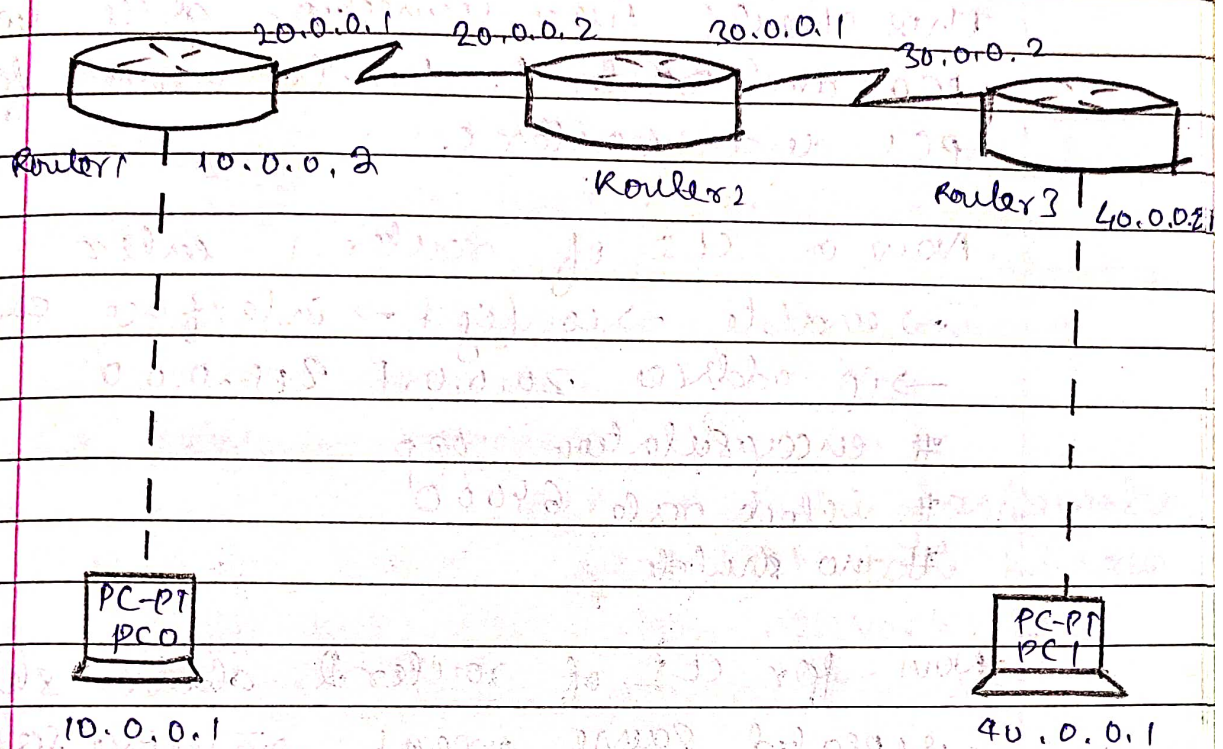 20.0.0.1 20.0.0.2 30.0.0.1 30.0.0.2
Router1 10.0.0.2 Router2 Router3
PC-PT PC0
PC-PT PC1
10.0.0.1 40.0.0.1